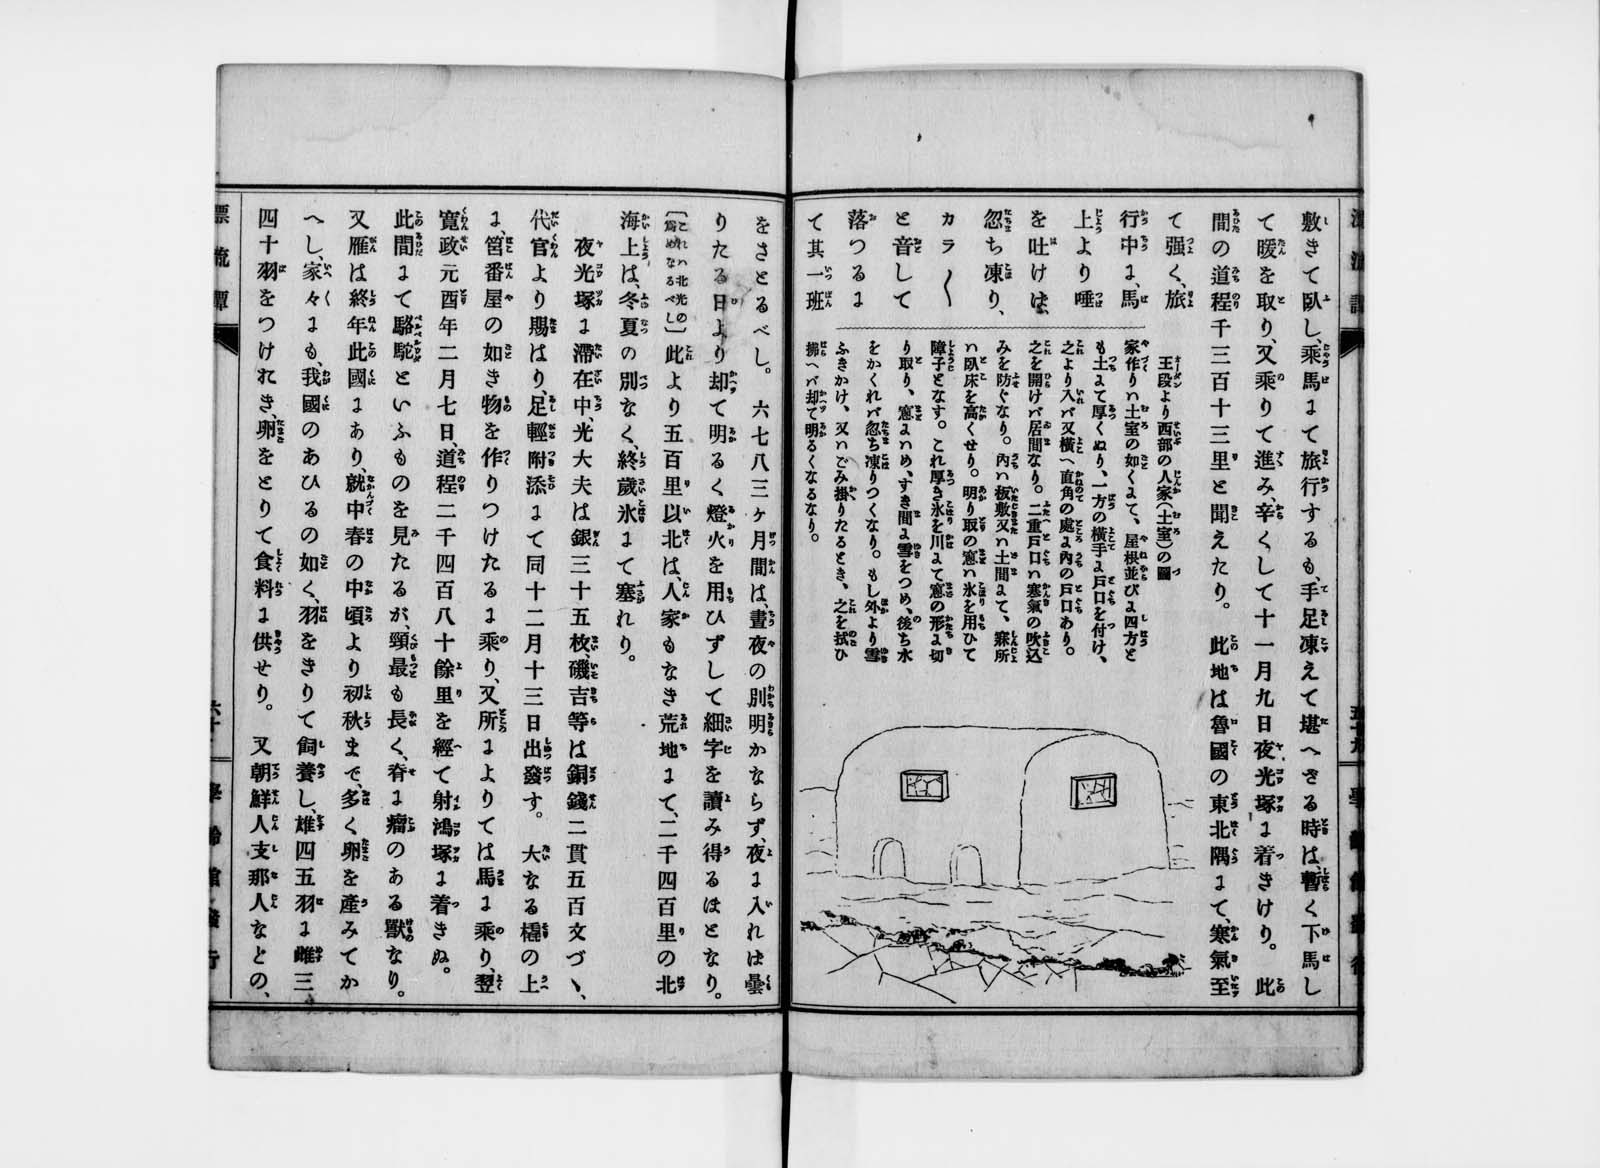 敷きて臥し、乘馬にて旅行するも、手足凍えて堪へざる時は、暫く下馬し
て暖を取り、又乘りて進み、辛くして十一月九日夜光塚に着きけり。　此
間の道程千三百十三里と聞えたり。　此地は魯國の東北隅にて、寒氣至
て强く、旅
行中に、馬
上より唾
を吐けは、
忽ち凍り、
カラ〱
と音して
落つるに
て其一班
王段より西部の人家(土室)の圖
家作りハ土室の如くにて、屋根並びに四方と
も土にて厚くぬり、一方の橫手に戶口を付け、
之より入バ又橫へ直角の處に內の戶口あり。
之を開けバ居間なり。二重戶口ハ寒氣の吹込
みを防ぐなり。內ハ板敷又ハ土間にて、寐所
ハ臥床を高くせり。明り取の窓ハ氷を用ひて
障子となす。これ厚き氷を川にて窓の形に切
り取り、窓にハめ、すき間に雪をつめ、後ち水
をかくれバ忽ち凍りつくなり。もし外より雪
ふきかけ、又ハごみ掛りたるとき、之を拭ひ
拂ヘバ却て明るくなるなり。
五十九
漂流譚
をさとるべし。　六七八三ヶ月間は、晝夜の別明かならず、夜に入れは曇
りたる日より却て明るく燈火を用ひずして細字を讀み得るほとなり。
〔これハ北光の爲めなるべし〕此より五百里以北は、人家もなき荒地にて、二千四百里の北
海上は、冬夏の別なく、終歲氷にて塞れり。
夜光塚に滯在中、光大夫は銀三十五枚、磯吉等は銅錢二貫五百文づゝ、
代官より賜はり、足輕附添にて同十二月十三日出發す。　大なる橇の上
に、筥番屋の如き物を作りつけたるに乘り、又所によりては馬に乘り、翌
寬政元酉年二月七日、道程二千四百八十餘里を經て射鴻塚に着きぬ。
此間にて駱駝といふものを見たるが、頸最も長く、脊に瘤のある獸なり。
又雁は終年此國にあり、就中春の中頃より初秋まで、多く卵を產みてか
へし、家々にも、我國のあひるの如く、羽をきりて飼養し、雄四五羽に雌三
四十羽をつけれき、卵をとりて食料に供せり。　又朝鮮人支那人なとの、
漂流譚
六十
學齡館發行